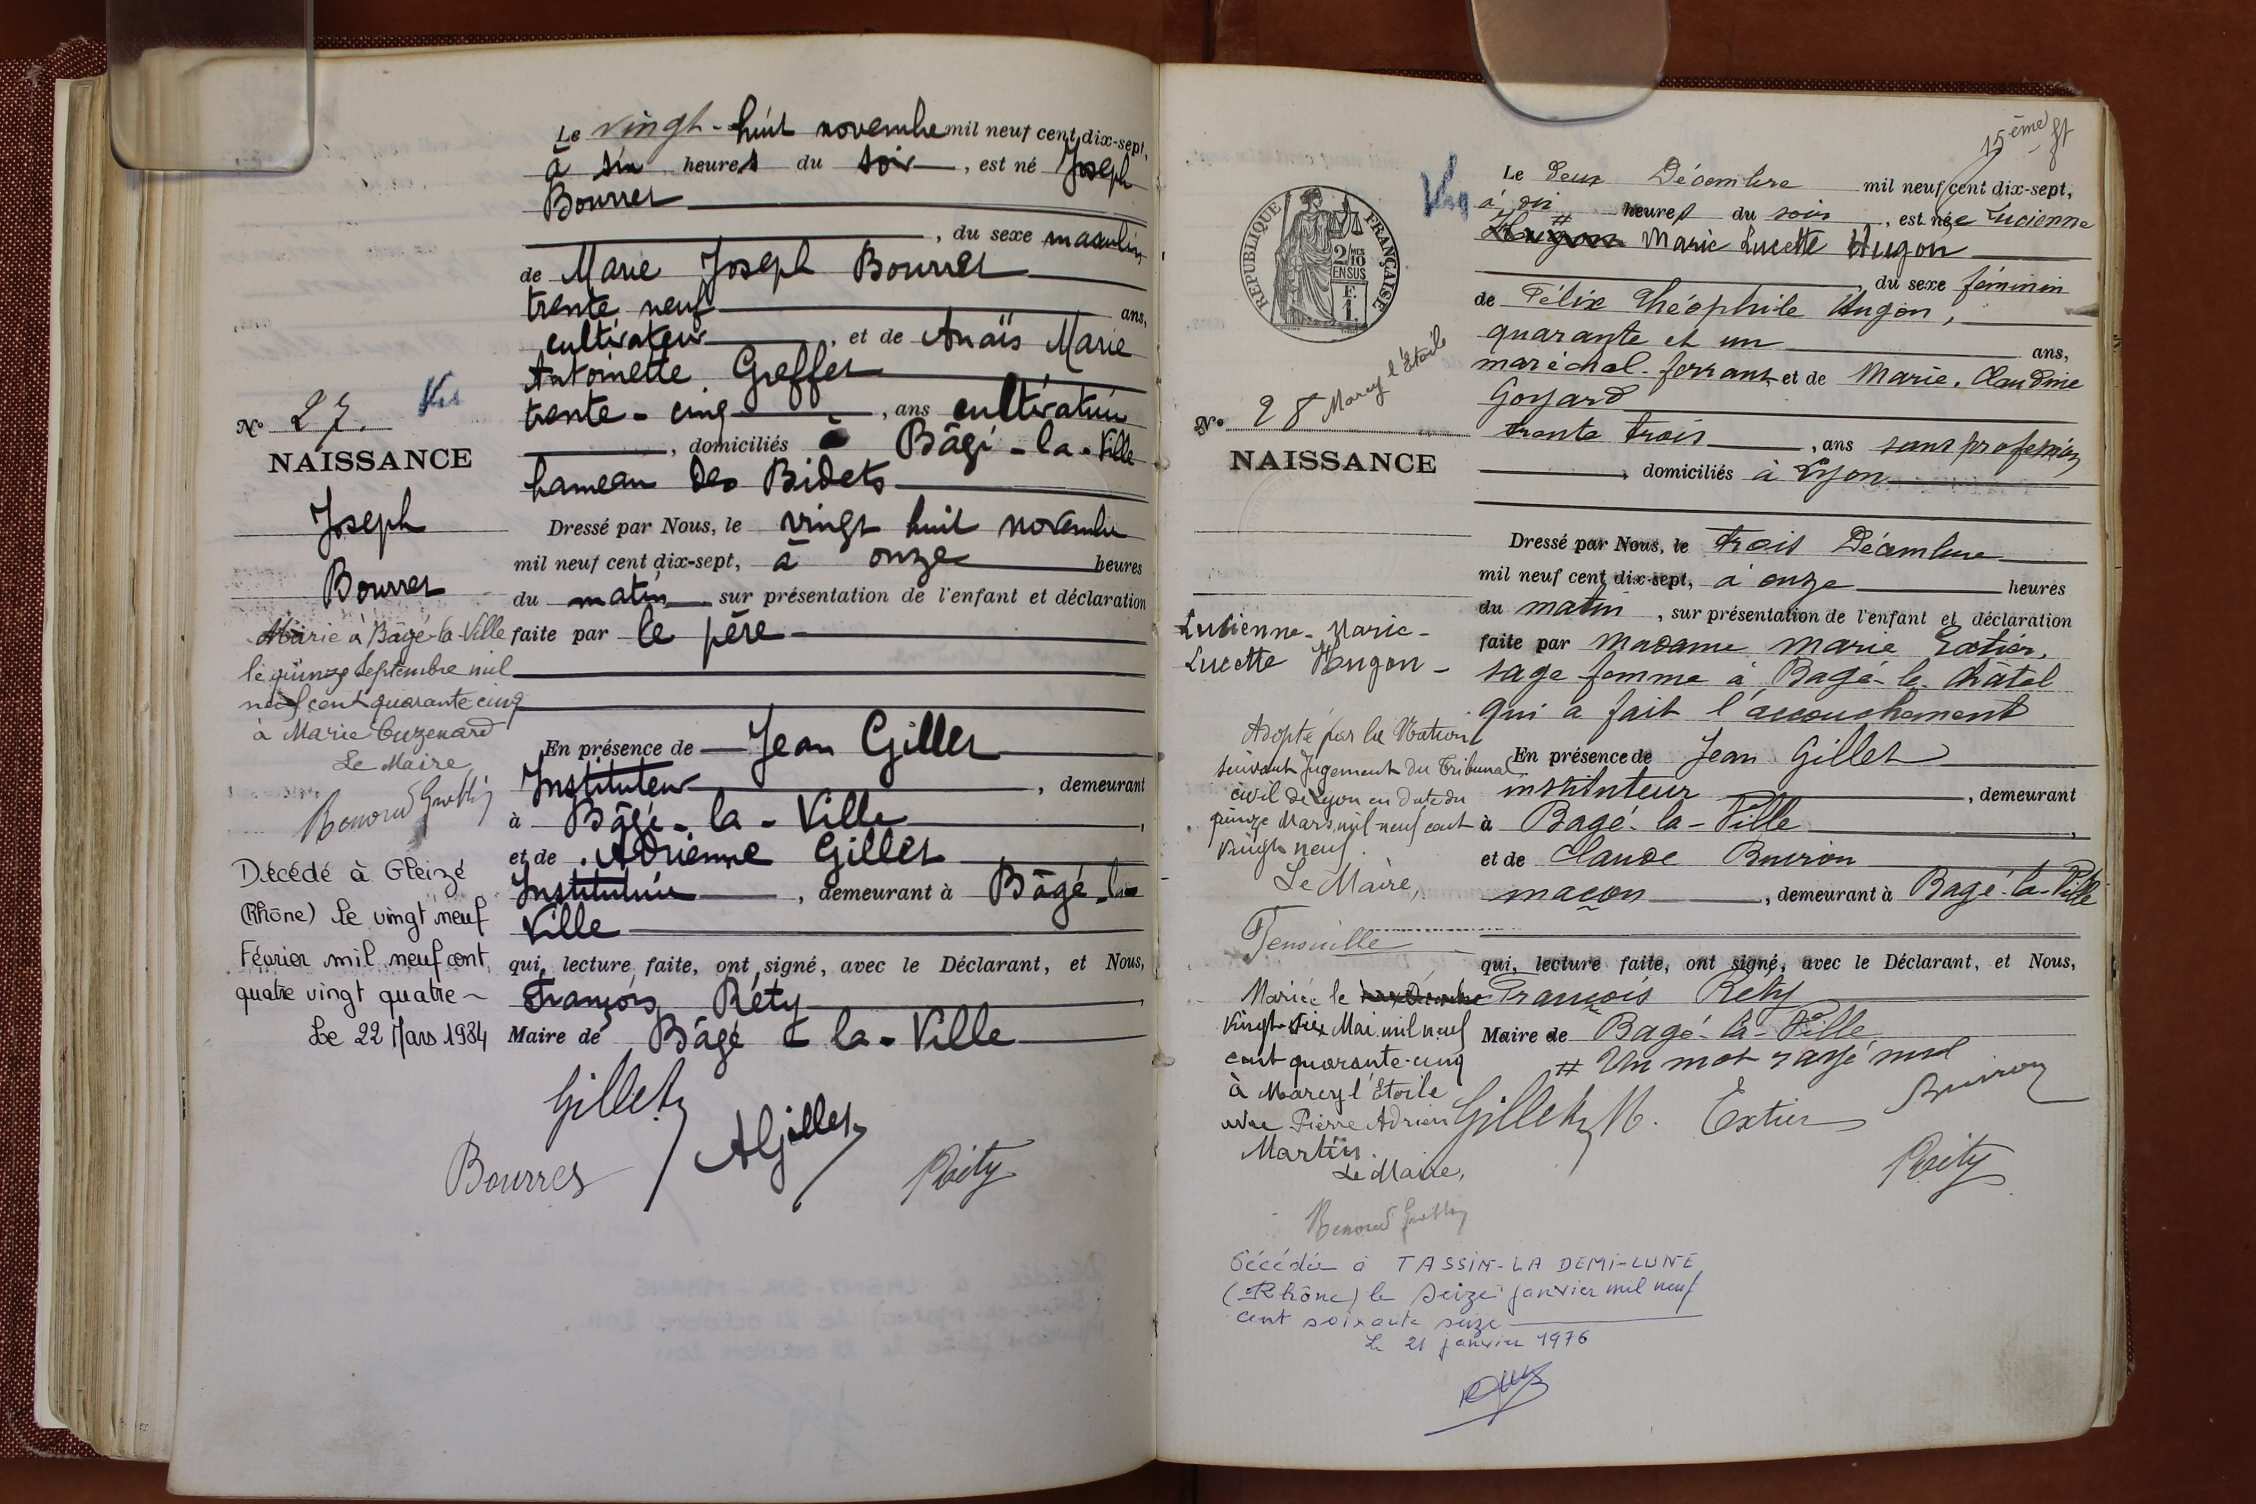 Le vingt-huit novembre mil neuf cent dix-sept,
à six heures du soir, est né Joseph
Bourret
, du sexe masculin
de Marie Joseph Bourret
trente neuf ans,
cultivateur, et de Anaïs Marie
Antoinette Greffet
trente-cinq, ans cultivatrice
, domiciliés à Bâgé-la-Ville
hameau des Bidets
Dressé par Nous, le vingt huit novembre
mil neuf cent dix-sept, à onze heures
du matin sur présentation de l'enfant et déclaration
faite par le père
En présence de Jean Gillet
Instituteur, demeurant
à Bâgé-la-Ville,
et de Adrienne Gillet
Institutrice, demeurant à Bâgé-la
Ville
qui, lecture faite, ont signé, avec le Déclarant, et Nous,
François Réty,
Maire de Bâgé-la-Ville
Gillet
AGillet
Bourret
Réty
No 27. Vu
NAISSANCE
Joseph
Bourret
Marié à Bâgé-la-Ville
le quinze Septembre mil
neuf cent quarante cinq
à Marie Cuzenard
Le Maire
Décédé à Gleizé
(Rhône) le vingt neuf
Février mil neuf cent
quatre vingt quatre
Le 22 Mars 1984
15ème
RÉPUBLIQUE FRANÇAISE
2/10
EN SUS
Le deux Décembre mil neuf cent dix-sept,
à dix heures du soir, est née Lucienne
# Hugon Marie Lucette Hugon
du sexe féminin
de Félix Théophile Hugon,
quarante et un ans,
maréchal-ferrant et de Marie-Claudine
Goyard
trente trois, ans sans profession
, domiciliés à Lyon
Dressé par Nous, le trois Décembre
mil neuf cent dix-sept, à onze heures
du matin, sur présentation de l'enfant et déclaration
faite par madame Marie Extier,
sage femme à Bagé-le-châtel
qui a fait l'accouchement
En présence de Jean Gillet
instituteur, demeurant
à Bagé-la-Ville,
et de Claude Buiron
maçon, demeurant à Bagé-la-Ville
qui, lecture faite, ont signé, avec le Déclarant, et Nous,
François Réty
Maire de Bagé-la-Ville
# Un mot rayé nul
Gillet M. Extier Buiron
Réty
Vu
No 28 Marcy l'Etoile
NAISSANCE
Lucienne-Marie-
Lucette Hugon-
Adopté par la Nation
suivant Jugement du Tribunal
civil de Lyon en date du
quinze Mars mil-neuf cent
vingt neuf.
Le Maire,
Mariée le
vingt-six Mai mil neuf
cent quarante-cinq
à Marcy l'Etoile
avec Pierre Adrien
Martin.
Le Maire,
Décédée à TASSIN-LA DEMI-LUNE
(Rhône) le seize janvier mil neuf
cent soixante seize
Le 21 janvier 1976